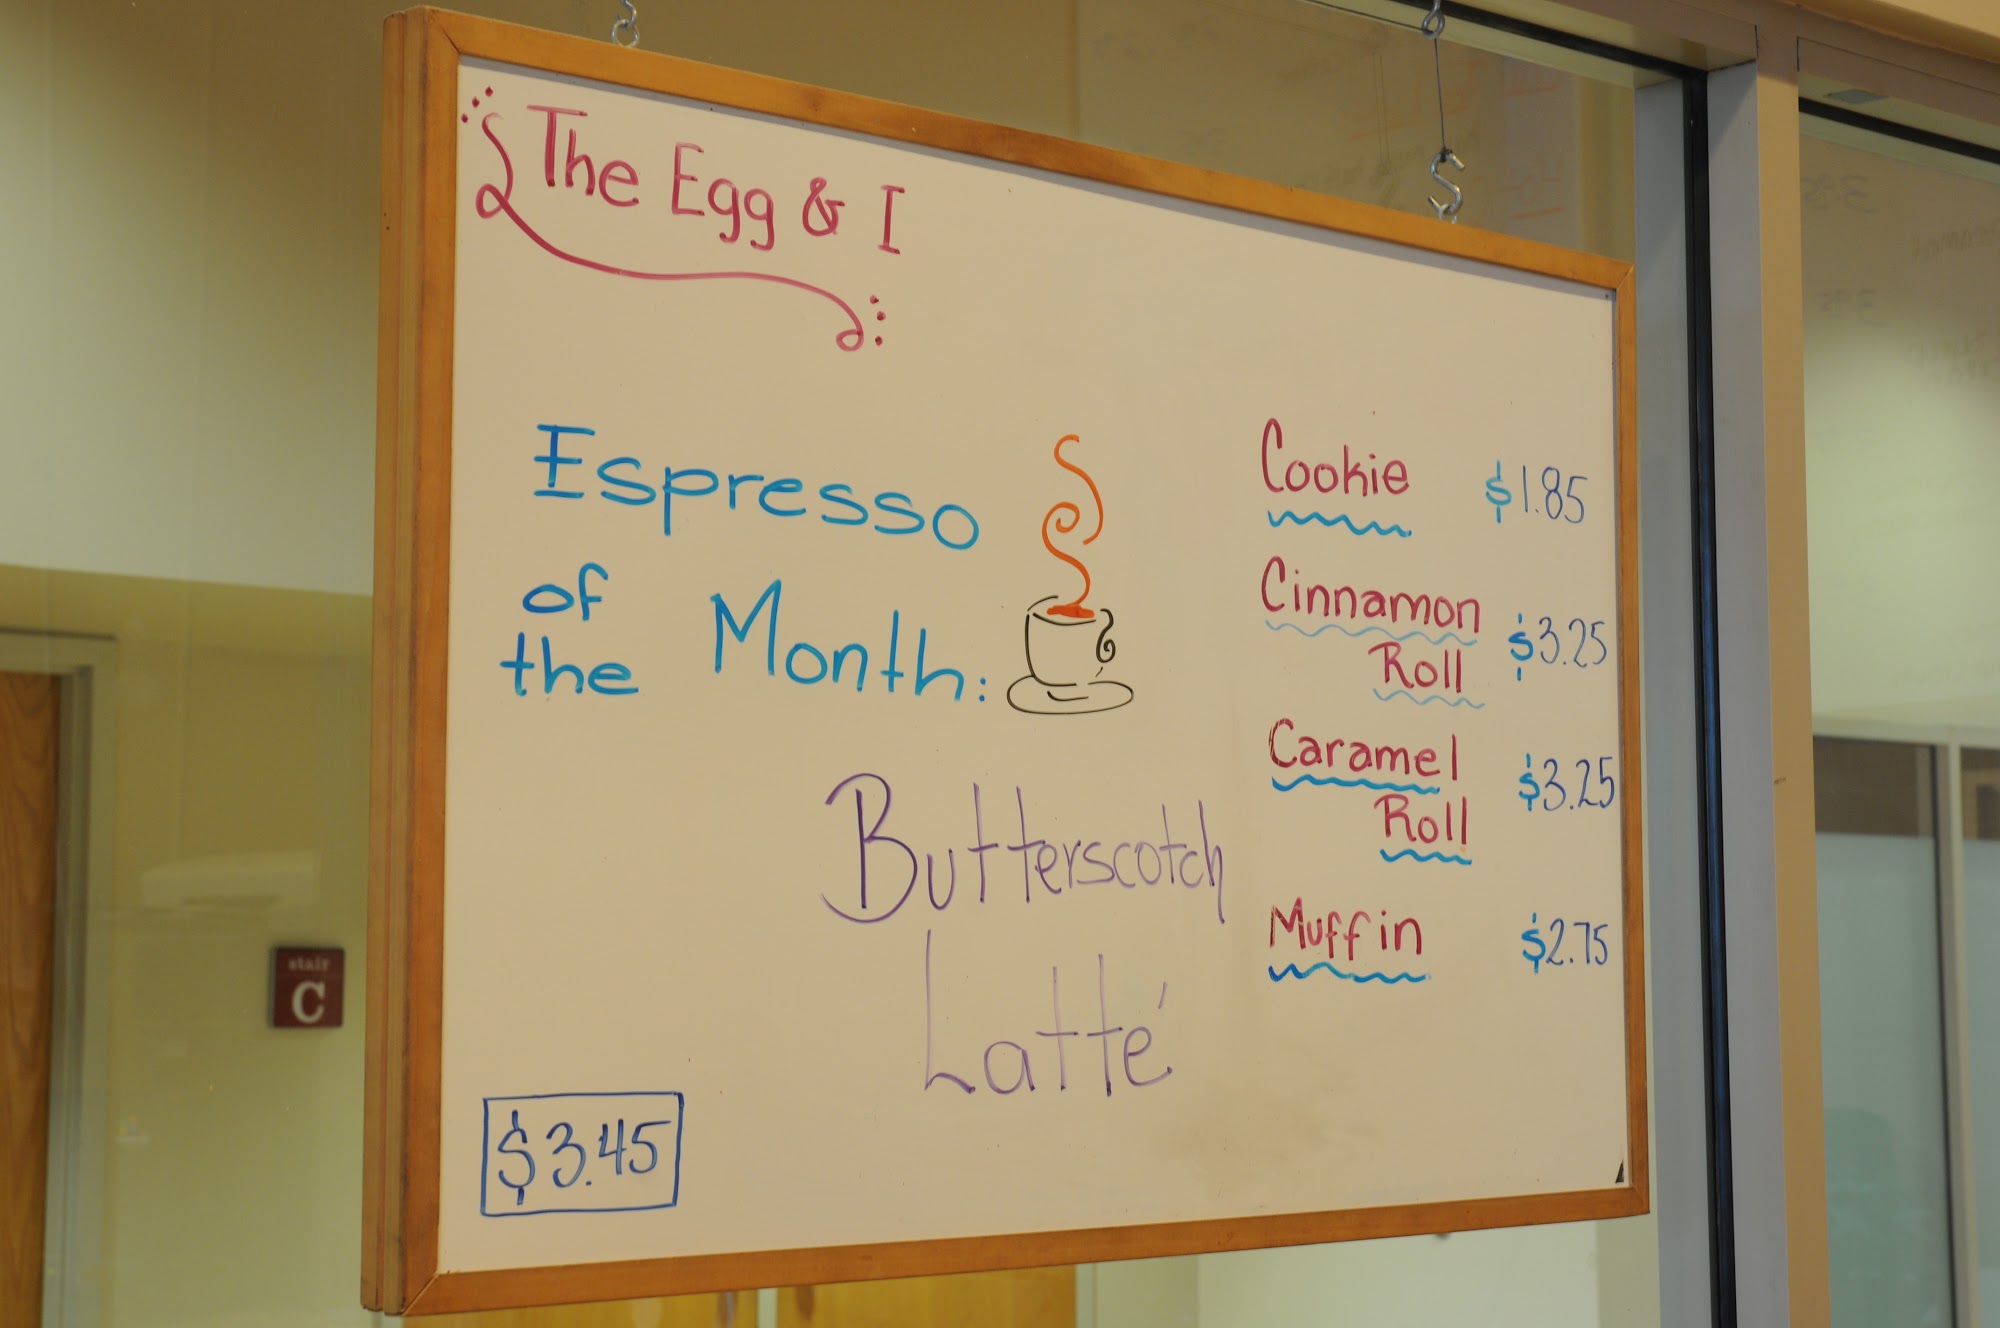 The Egg & I
Espresso
of
the Month:
Butterscotch
Latté
$3.45
Cookie $1.85
Cinnamon
Roll $3.25
Caramel
Roll $3.25
Muffin $2.75
stair
C